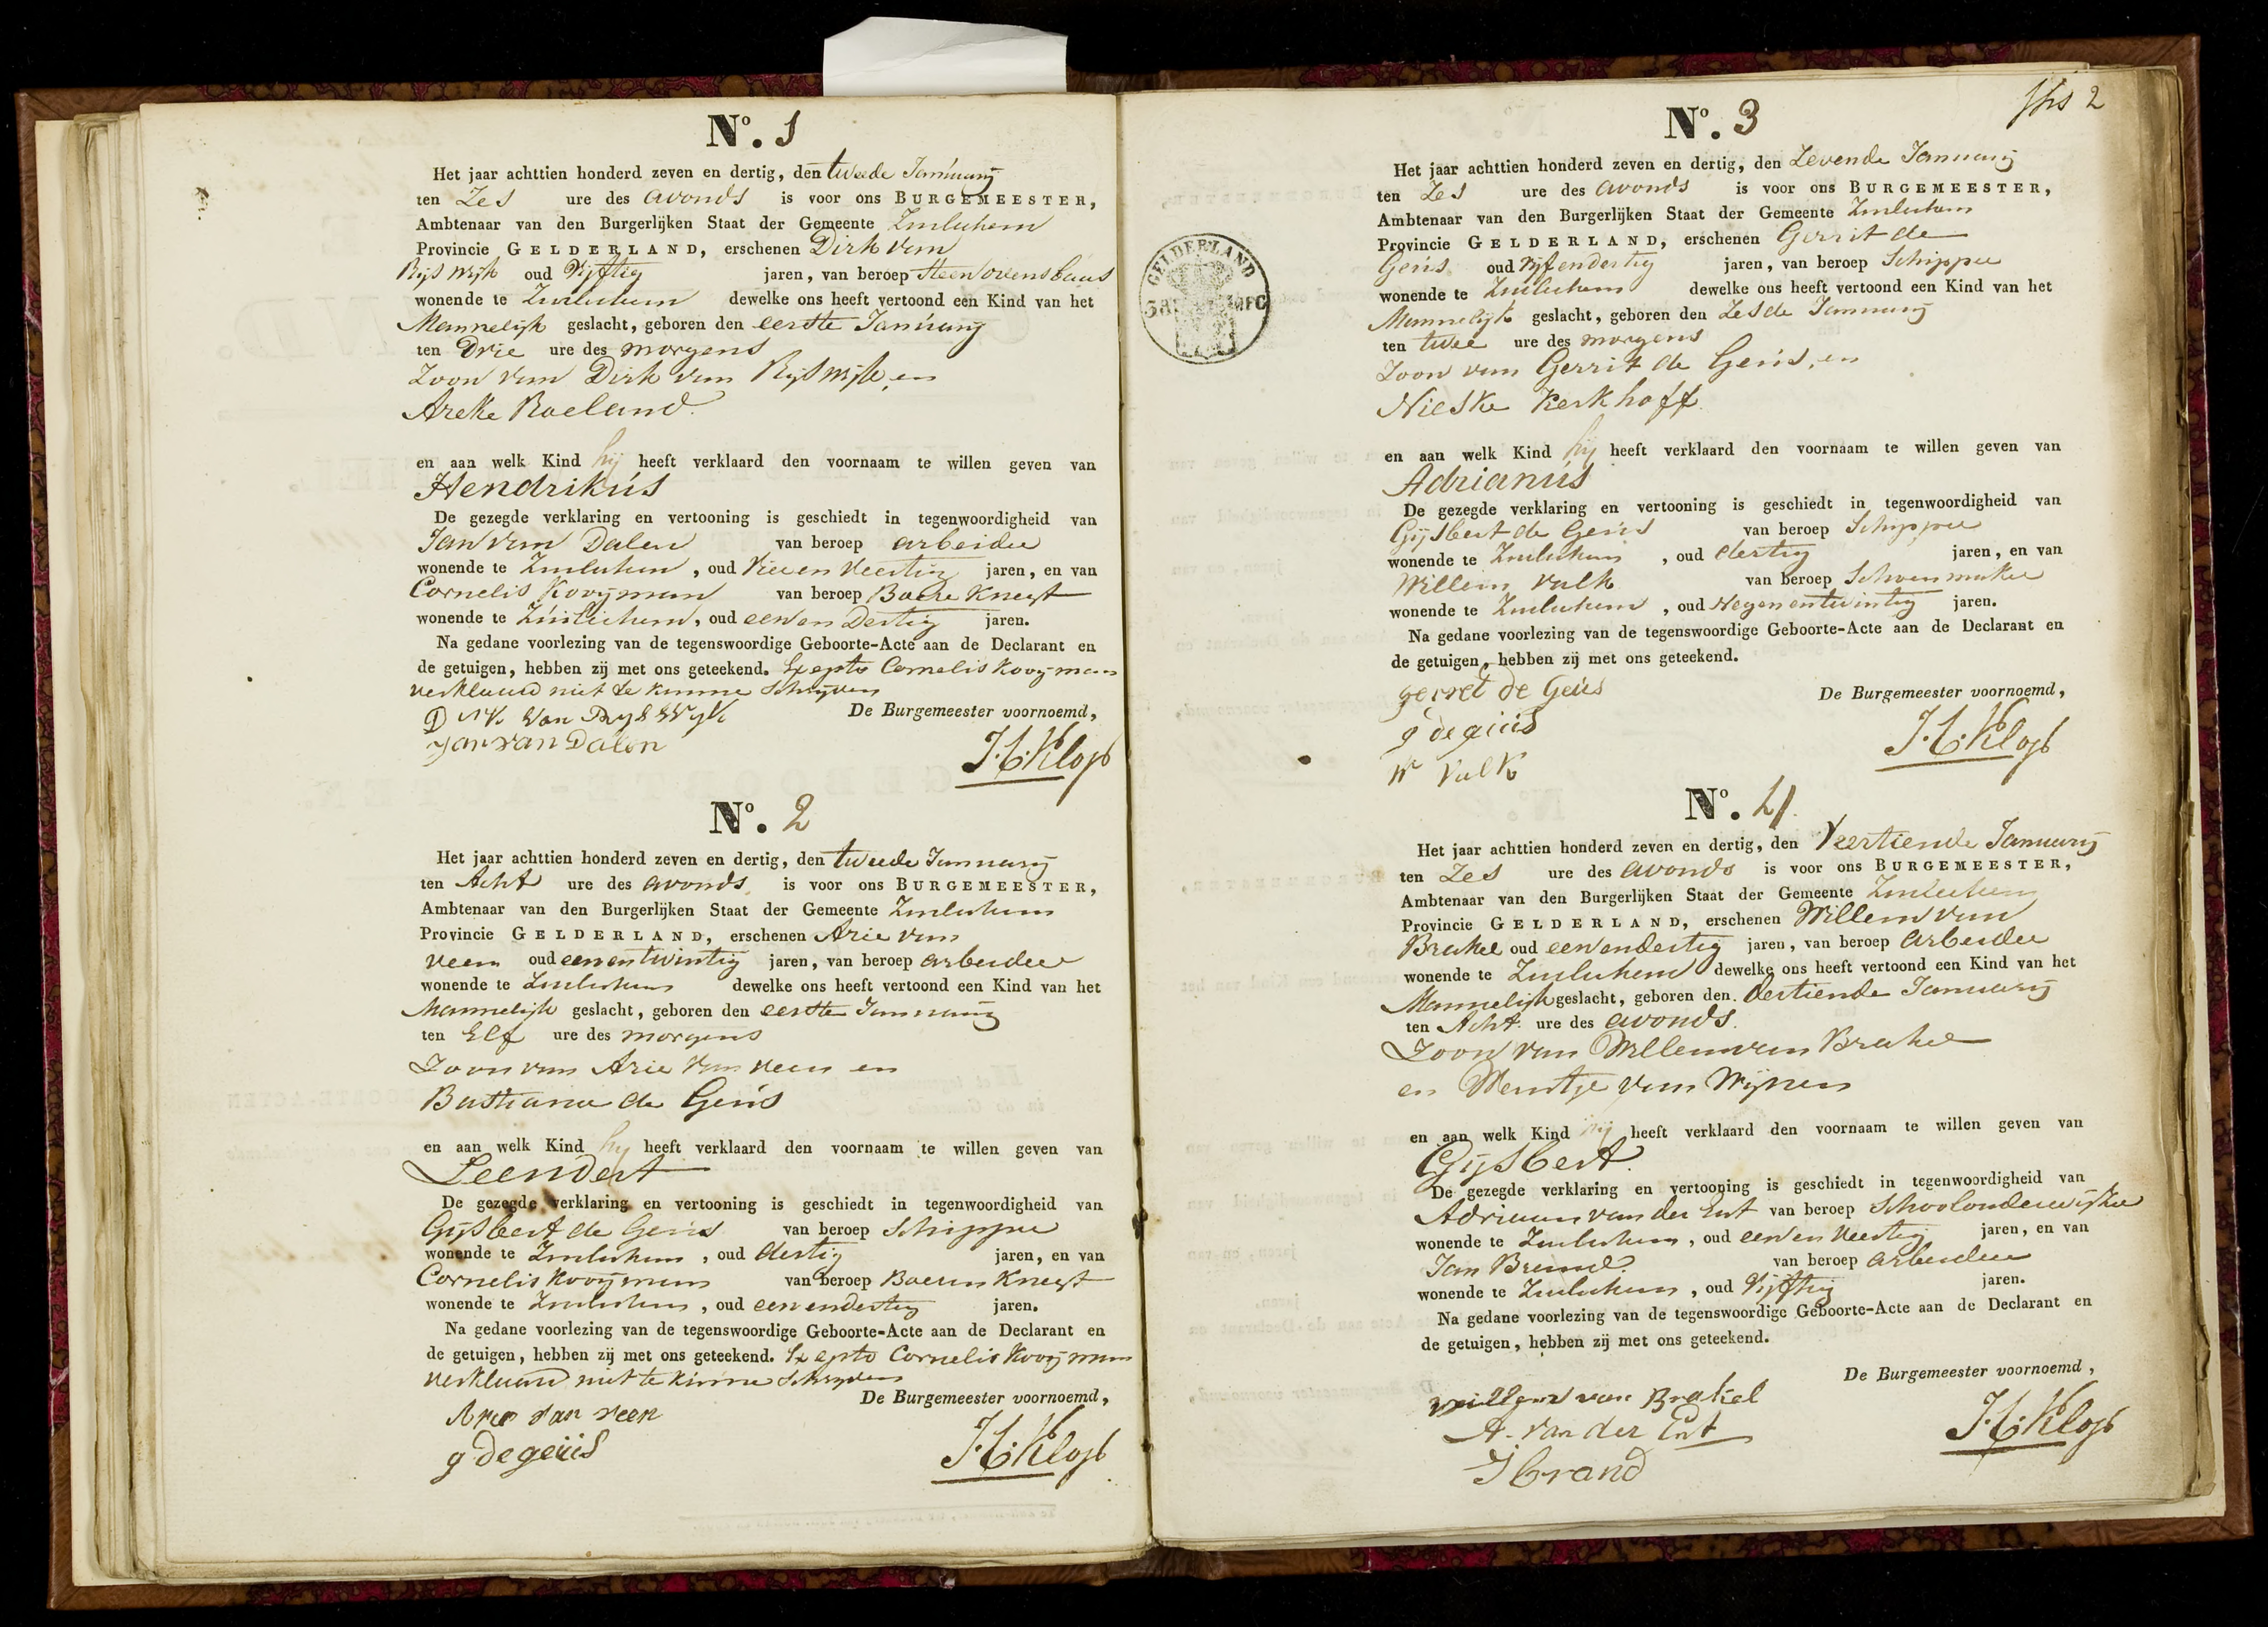 No. 1
Het jaar achttien honderd zeven en dertig, den tweede Januarij
ten Zes ure des avonds is voor ons BURGEMEESTER,
Ambtenaar van den Burgerlijken Staat der Gemeente Zuilichem
Provincie GELDERLAND, erschenen Dirk van
Rijswijk oud Vijftig jaren, van beroep Steenovensbaas
wonende te Zuilichem dewelke ons heeft vertoond een Kind van het
Mannelijk geslacht, geboren den eerste Januarij
ten Drie ure des morgens
Zoon van Dirk van Rijswijk, en
Areke Roeland.
en aan welk Kind hij heeft verklaard den voornaam te willen geven van
Hendrikus
De gezegde verklaring en vertooning is geschiedt in tegenwoordigheid van
Jan van Dalen van beroep arbeider
wonende te Zuilichem, oud Vier en Veertig jaren, en van
Cornelis Kooyman van beroep Boere Knegt
wonende te Zuilichem, oud een en Dertig jaren.
Na gedane voorlezing van de tegenswoordige Geboorte-Acte aan de Declarant en
de getuigen, hebben zij met ons geteekend. Exepto Cornelis Kooyman
verklaard niet te kunne Schrijven
De Burgemeester voornoemd,
Dirk Van Ryswyk
Jan van Dalen
H. Klop
No. 2
Het jaar achttien honderd zeven en dertig, den tweede Januarij
ten Acht ure des avonds is voor ons BURGEMEESTER,
Ambtenaar van den Burgerlijken Staat der Gemeente Zuilichem
Provincie GELDERLAND, erschenen Arie van
Veen oud eenentwintig jaren, van beroep arbeider
wonende te Zuilichem dewelke ons heeft vertoond een Kind van het
Mannelijk geslacht, geboren den eerste Januarij
ten Elf ure des morgens
Zoon van Arie van Veen en
Bastiana de Geus
en aan welk Kind hij heeft verklaard den voornaam te willen geven van
Leendert
De gezegde verklaring en vertooning is geschiedt in tegenwoordigheid van
Gijsbert de Geus van beroep Schipper
wonende te Zuilichem, oud dertig jaren, en van
Cornelis Kooijman van beroep Boeren Knegt
wonende te Zuilichem, oud een endertig jaren.
Na gedane voorlezing van de tegenswoordige Geboorte-Acte aan de Declarant en
de getuigen, hebben zij met ons geteekend. Exepto Cornelis Kooyman
verklaard niet te kunne Schryven
De Burgemeester voornoemd,
Arie van veen
g de geüs
H. Klop
fhs 2
No. 3
Het jaar achttien honderd zeven en dertig, den Zevende Januarij
ten Zes ure des avonds is voor ons BURGEMEESTER,
Ambtenaar van den Burgerlijken Staat der Gemeente Zuilichem
Provincie GELDERLAND, erschenen Gerrit de
Geus oud Vijfendertig jaren, van beroep Schipper
wonende te Zuilichem dewelke ons heeft vertoond een Kind van het
Mannelijk geslacht, geboren den Zesde Januarij
ten twee ure des morgens
Zoon van Gerrit de Geus, en
Nieske Kerkhoff
en aan welk Kind hij heeft verklaard den voornaam te willen geven van
Adrianus
De gezegde verklaring en vertooning is geschiedt in tegenwoordigheid van
Gijsbert de Geus van beroep Schipper
wonende te Zuilichem, oud dertig jaren, en van
Willem Valk van beroep Schoenmaker
wonende te Zuilichem, oud Negenentwintig jaren.
Na gedane voorlezing van de tegenswoordige Geboorte-Acte aan de Declarant en
de getuigen, hebben zij met ons geteekend.
gerret de Geüs
De Burgemeester voornoemd,
g de geüs
W Valk
H. Klop
GELDERLAND
No. 4
Het jaar achttien honderd zeven en dertig, den Veertiende Januarij
ten Zes ure des avonds is voor ons BURGEMEESTER,
Ambtenaar van den Burgerlijken Staat der Gemeente Zuilichem
Provincie GELDERLAND, erschenen Willem van
Brakel oud eenendertig jaren, van beroep Arbeider
wonende te Zuilichem dewelke ons heeft vertoond een Kind van het
Mannelijk geslacht, geboren den dertiende Januarij
ten Acht ure des avonds.
Zoon van Willem van Brakel
en Wentje van Wijnen
en aan welk Kind hij heeft verklaard den voornaam te willen geven van
Gijsbert.
De gezegde verklaring en vertooning is geschiedt in tegenwoordigheid van
Adriaan van der Ent van beroep Schoolonderwijzer
wonende te Zuilichem, oud een en Veertig jaren, en van
Jan Brand. van beroep arbeider
wonende te Zuilichem, oud Vijftig jaren.
Na gedane voorlezing van de tegenswoordige Geboorte-Acte aan de Declarant en
de getuigen, hebben zij met ons geteekend.
De Burgemeester voornoemd,
willem van Brakel
A. van der Ent
J brand
H. Klop